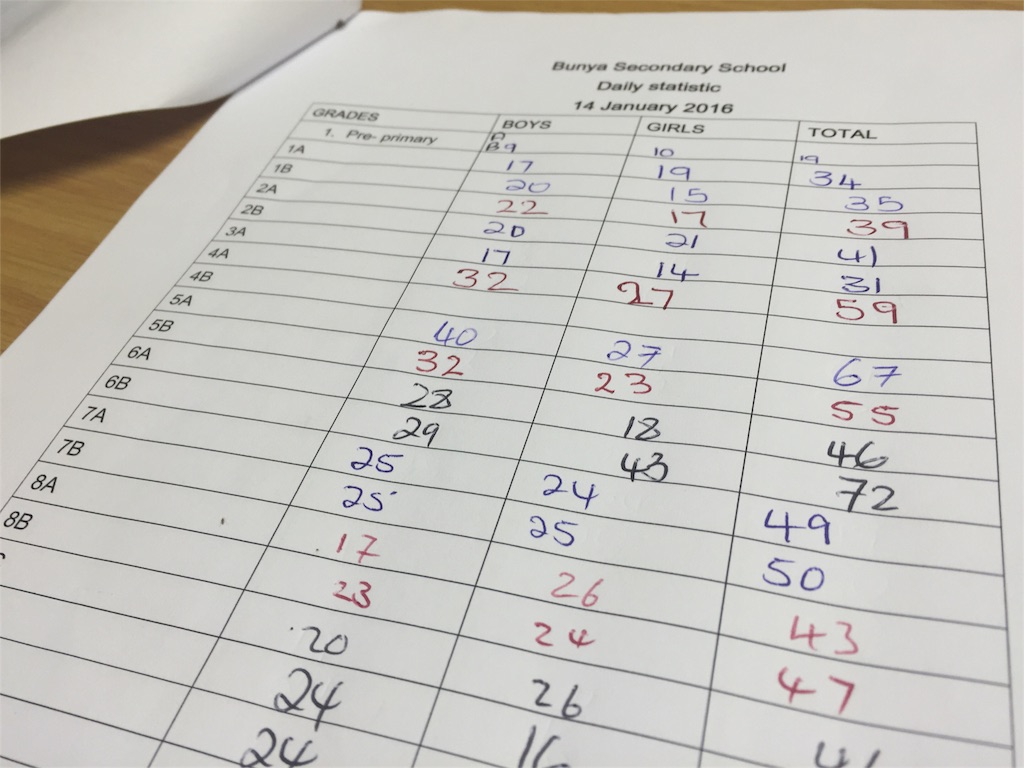 Bunya Secondary School
Daily statistic
14 January 2016
GRADES BOYS GIRLS TOTAL
1. Pre- primary A B9 10 19
1A 17 19 34
1B 20 15 35
2A 22 17 39
2B 20 21 41
3A 17 14 31
4A 32 27 59
4B
5A 40 27 67
5B 32 23 55
6A 28 18 46
6B 29 43 72
7A 25 24 49
7B 25 25 50
8A 17 26 43
8B 23 24 47
20 26
24 16
24